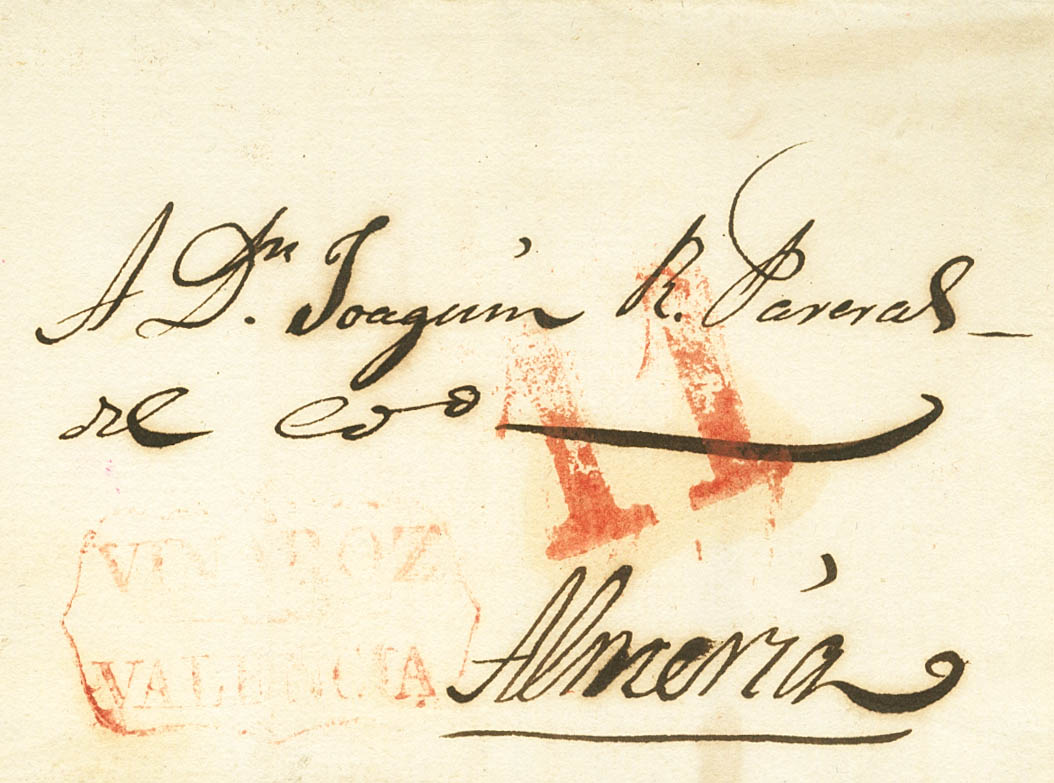 A Dn. Joaquín R. Pareras
del Coo
11
VINAROZ
VALENCIA
Almería